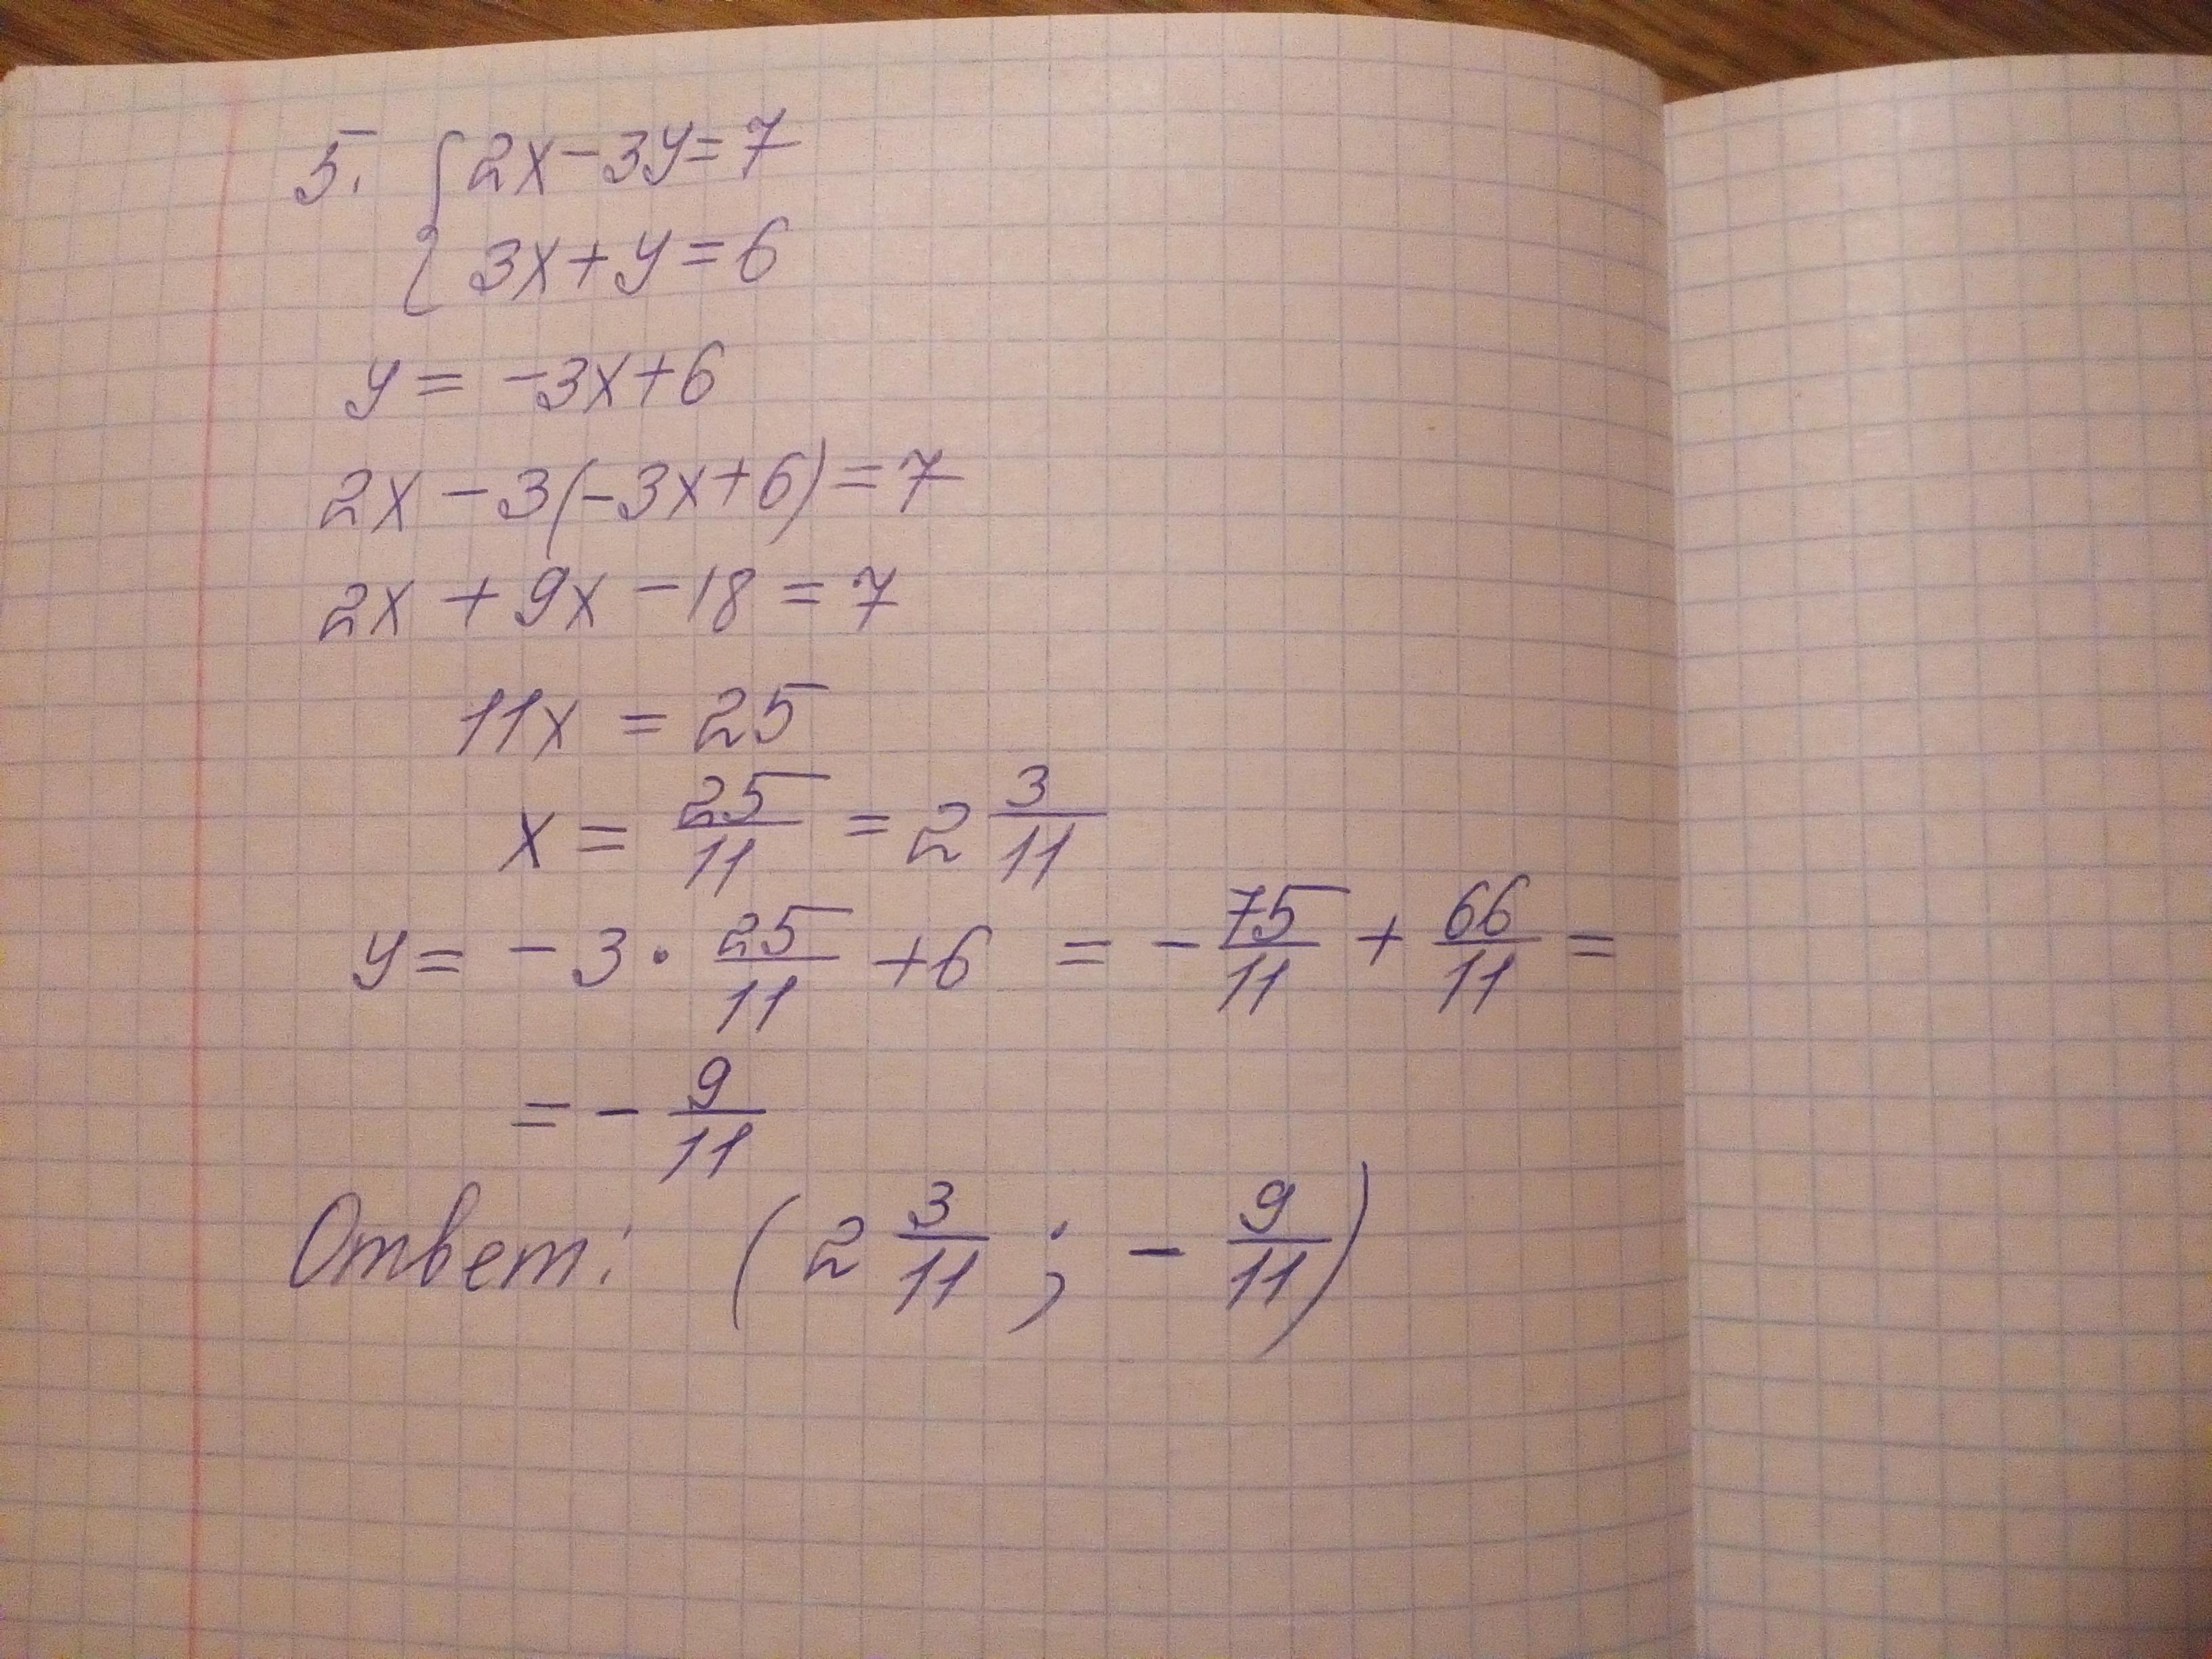 5. { 2x-3y=7
3x+y=6
y = -3x+6
2x - 3(-3x+6) = 7
2x + 9x - 18 = 7
11x = 25
x = 25/11 = 2 3/11
y = -3 · 25/11 + 6 = - 75/11 + 66/11 =
= - 9/11
Ответ: (2 3/11 ; - 9/11)